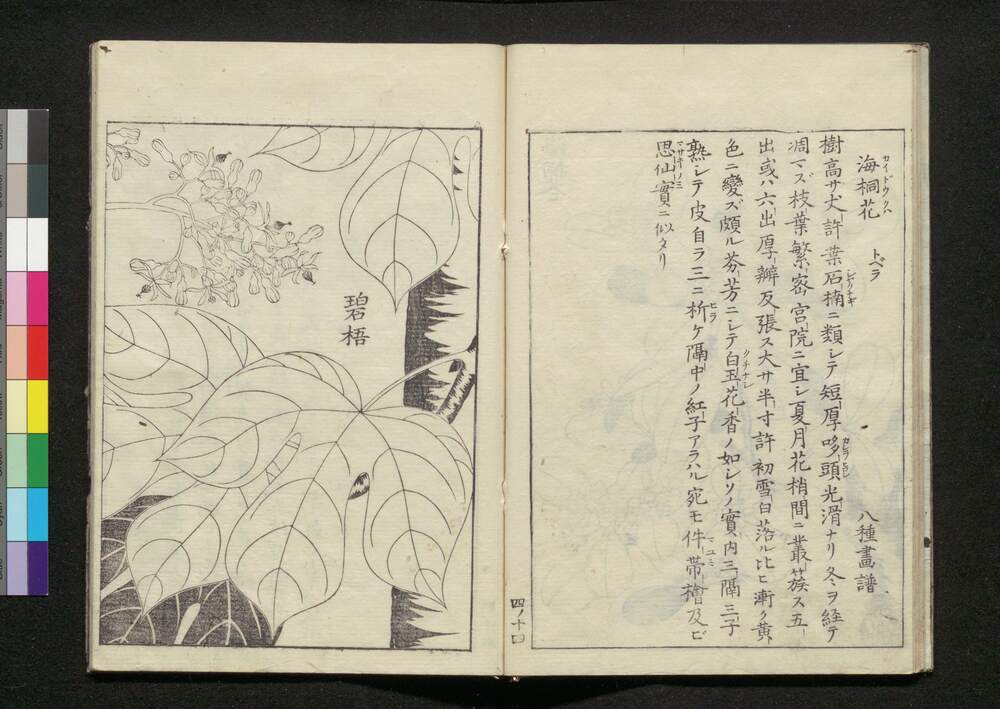 海桐花 トベラ 八種畫譜
カイドウクハ
樹高サ丈許葉石楠ニ類シテ短厚哆頭光滑ナリ冬ヲ経テ
シヤクナギ
凋マズ枝葉繁宻宮院ニ宜シ夏月花梢間ニ叢簇ス五
出或ハ六出厚瓣反張ス大サ半寸許初雪白落ル比ヒ漸ク黄
色ニ變ズ頗ル芬芳ニシテ白玉花香ノ如シソノ實内三隔三子
クチナシ
熟シテ皮自ラ三ニ析ケ隔中ノ紅子アラハル宛モ件帯檜及ビ
ヒラ
マユミ
思仙實ニ似タリ
マサキノミ
四ノ十四
碧梧